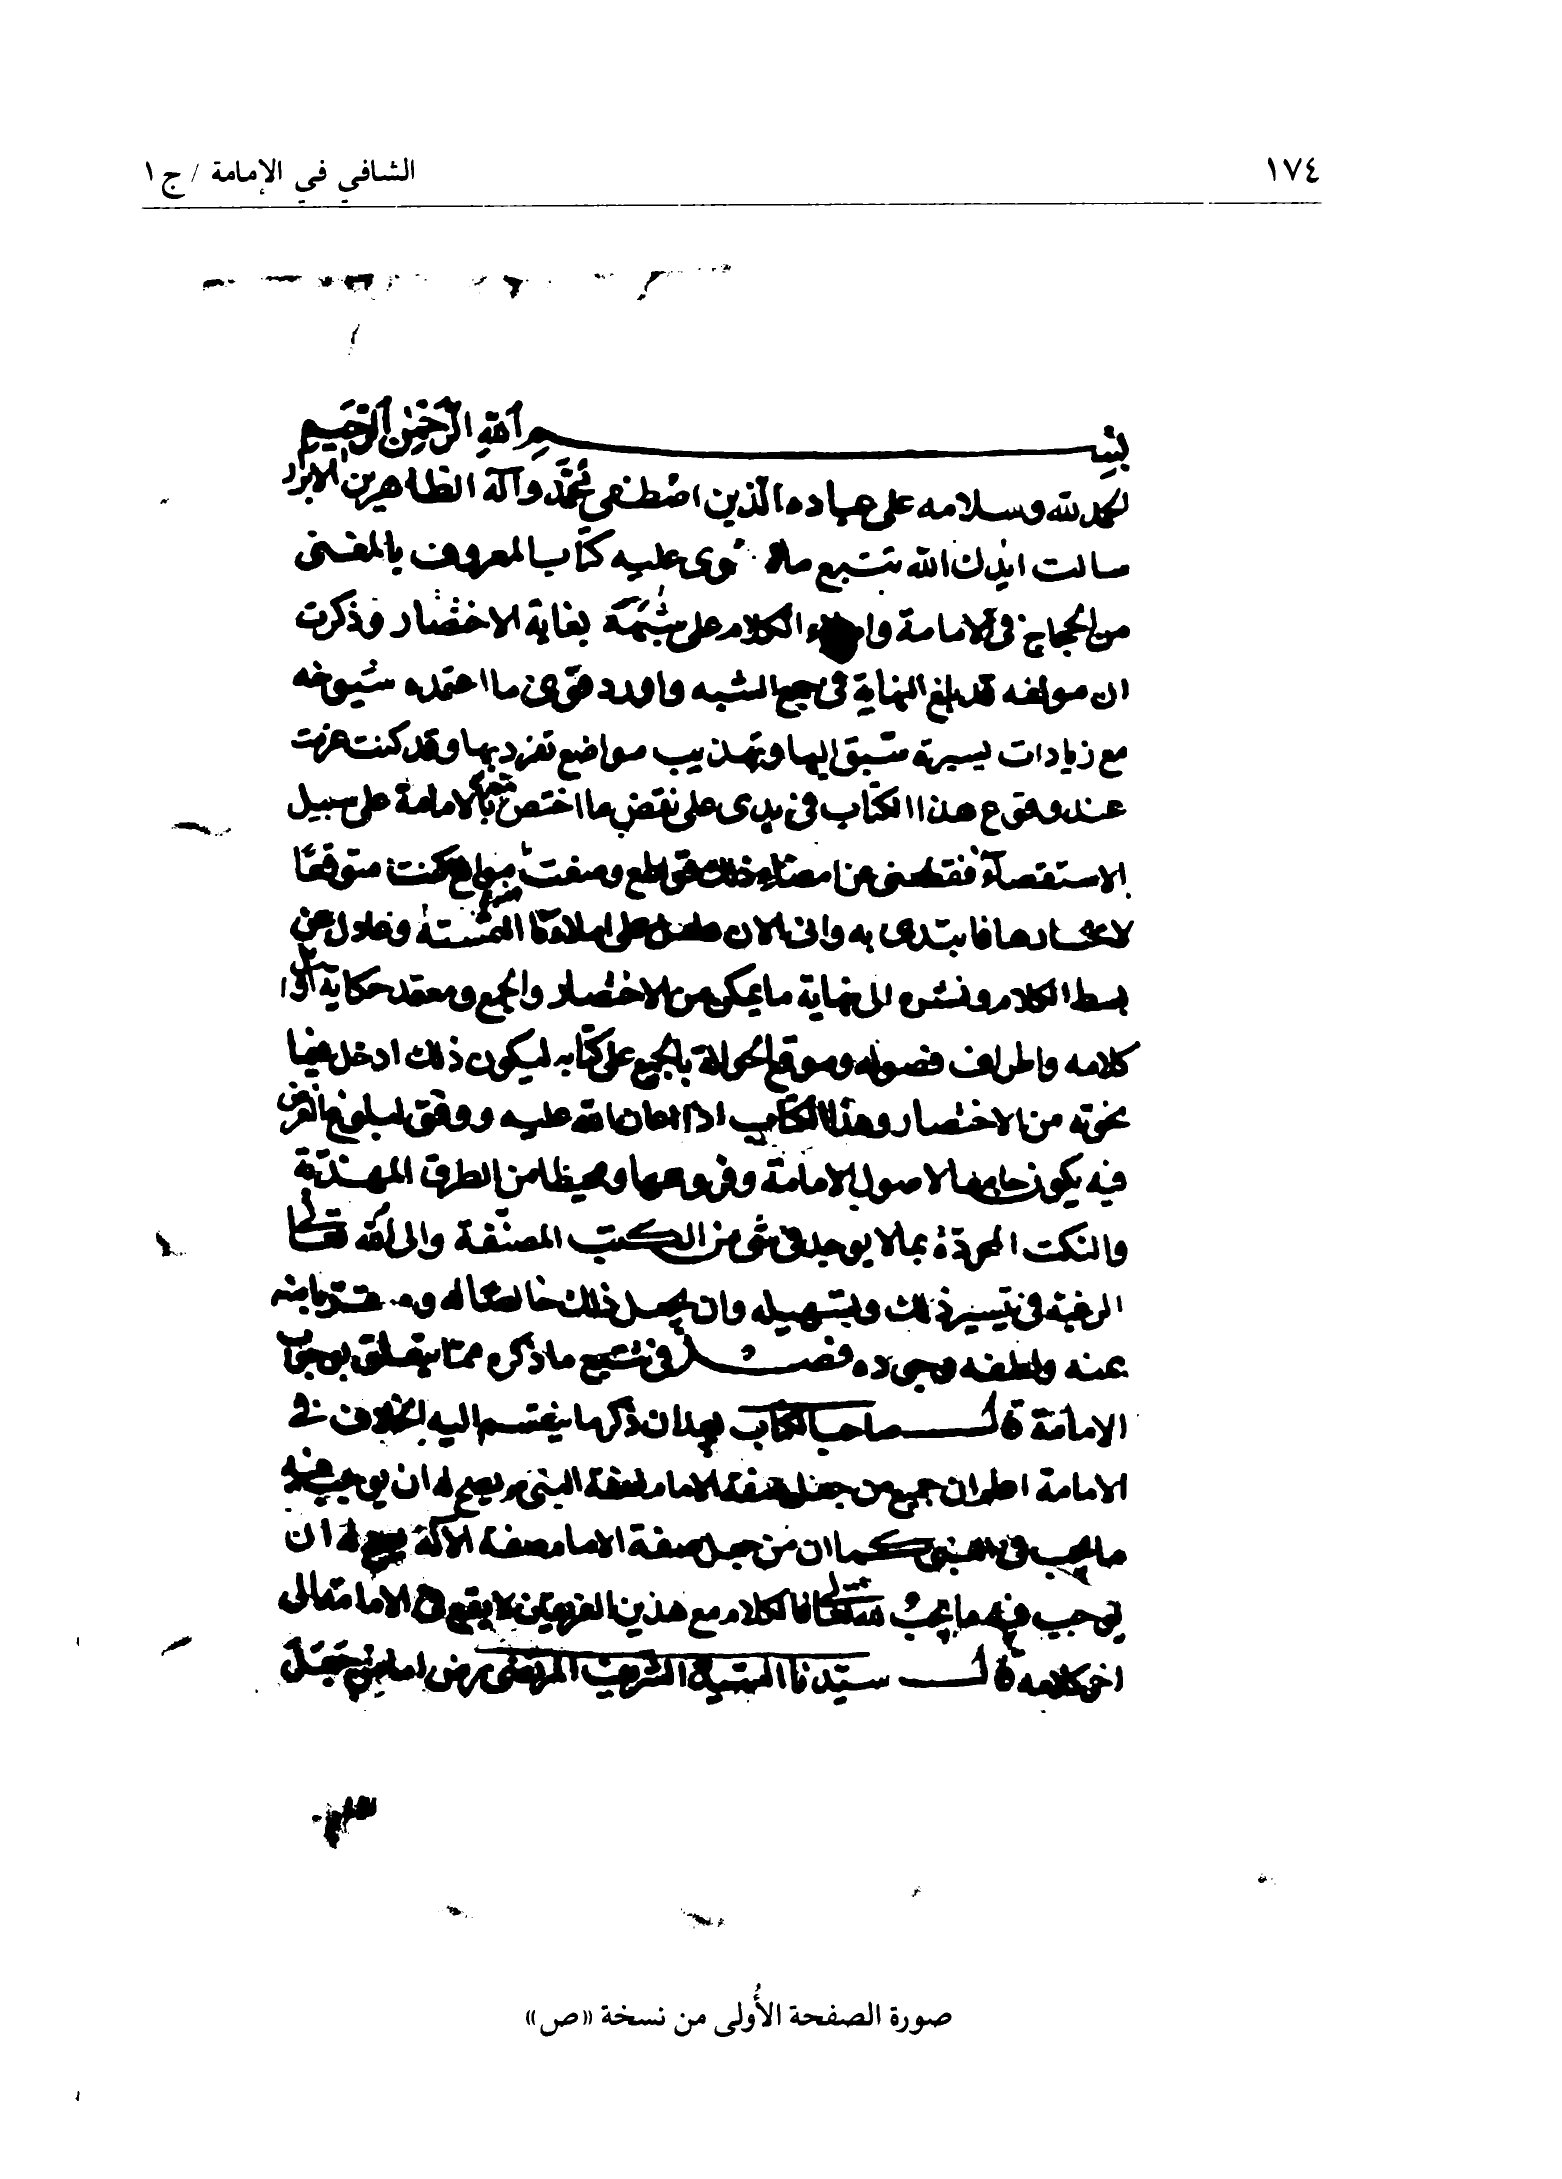 ١٧٤
الشافي في الإمامة / ج ١
بسم الله الرحمن الرحيم
الحمد لله وسلامه على عباده الذين اصطفى محمد وآله الطاهرين الابرار
سالت ايدك الله تتبع ما عليه كتاب المعروف بالمغنى
من الحجاج في الامامة الكلام على شبهه بغاية الاختصار وذكرت
ان مولفه قد بلغ النهاية في جمع الشبه واورد قوى ما اعتمده شيوخه
مع زيادات يسيرة سبق اليها وتهذيب مواضع تفرد بها وقد كنت عزمت
عند وقوع هذا الكتاب في يدى على نقض ما اختص بالامامة على سبيل
الاستقصآء فقطعنى عن امضاء ذلك قواطع ومنعت موانع كنت متوقعا
لانحسارها فابتدى به وانى الان عامل على املاء ما التمسته وعادل عن
بسط الكلام ونشره الى نهاية ما يمكن من الاختصار والجمع ومعتمد حكاية اوائل
كلامه واطراف فصوله وموقع الحوالة بالجميع على كتابه ليكون ذلك ادخل فيما
نحوته من الاختصار وهذا الكتاب اذا اعان الله عليه ووفق لبلوغ الغرض
فيه يكون جامعا لاصول الامامة وفروعها ومحيطا من الطرق المهذبة
والنكت المحررة بما لا يوجد في شئ من الكتب المصنفة والى الله تعالى
الرغبة في تيسير ذلك وتسهيله وان يجعل ذلك خالصا له ومقربا منه
بمنه ولطفه وجوده فصل في تتبع ما ذكره مما يتعلق بوجوب
الامامة قال صاحب الكتاب بعد ان ذكر ما ينقسم اليه الخلاف في
الامامة اعلم ان جميع من جعل صفة الامام صفة النبى يصح له ان يوجب فيه
ما يجب في النبى كما ان من جعل صفة الامام صفة الاله يصح له ان
يوجب فيه ما يجب لله تعالى فالكلام مع هذين الفريقين لا يقع في الامامة الى
اخر كلامه قال سيدنا السيد الشريف المرتضى رض اما من جعل
صورة الصفحة الأُولى من نسخة «ص»